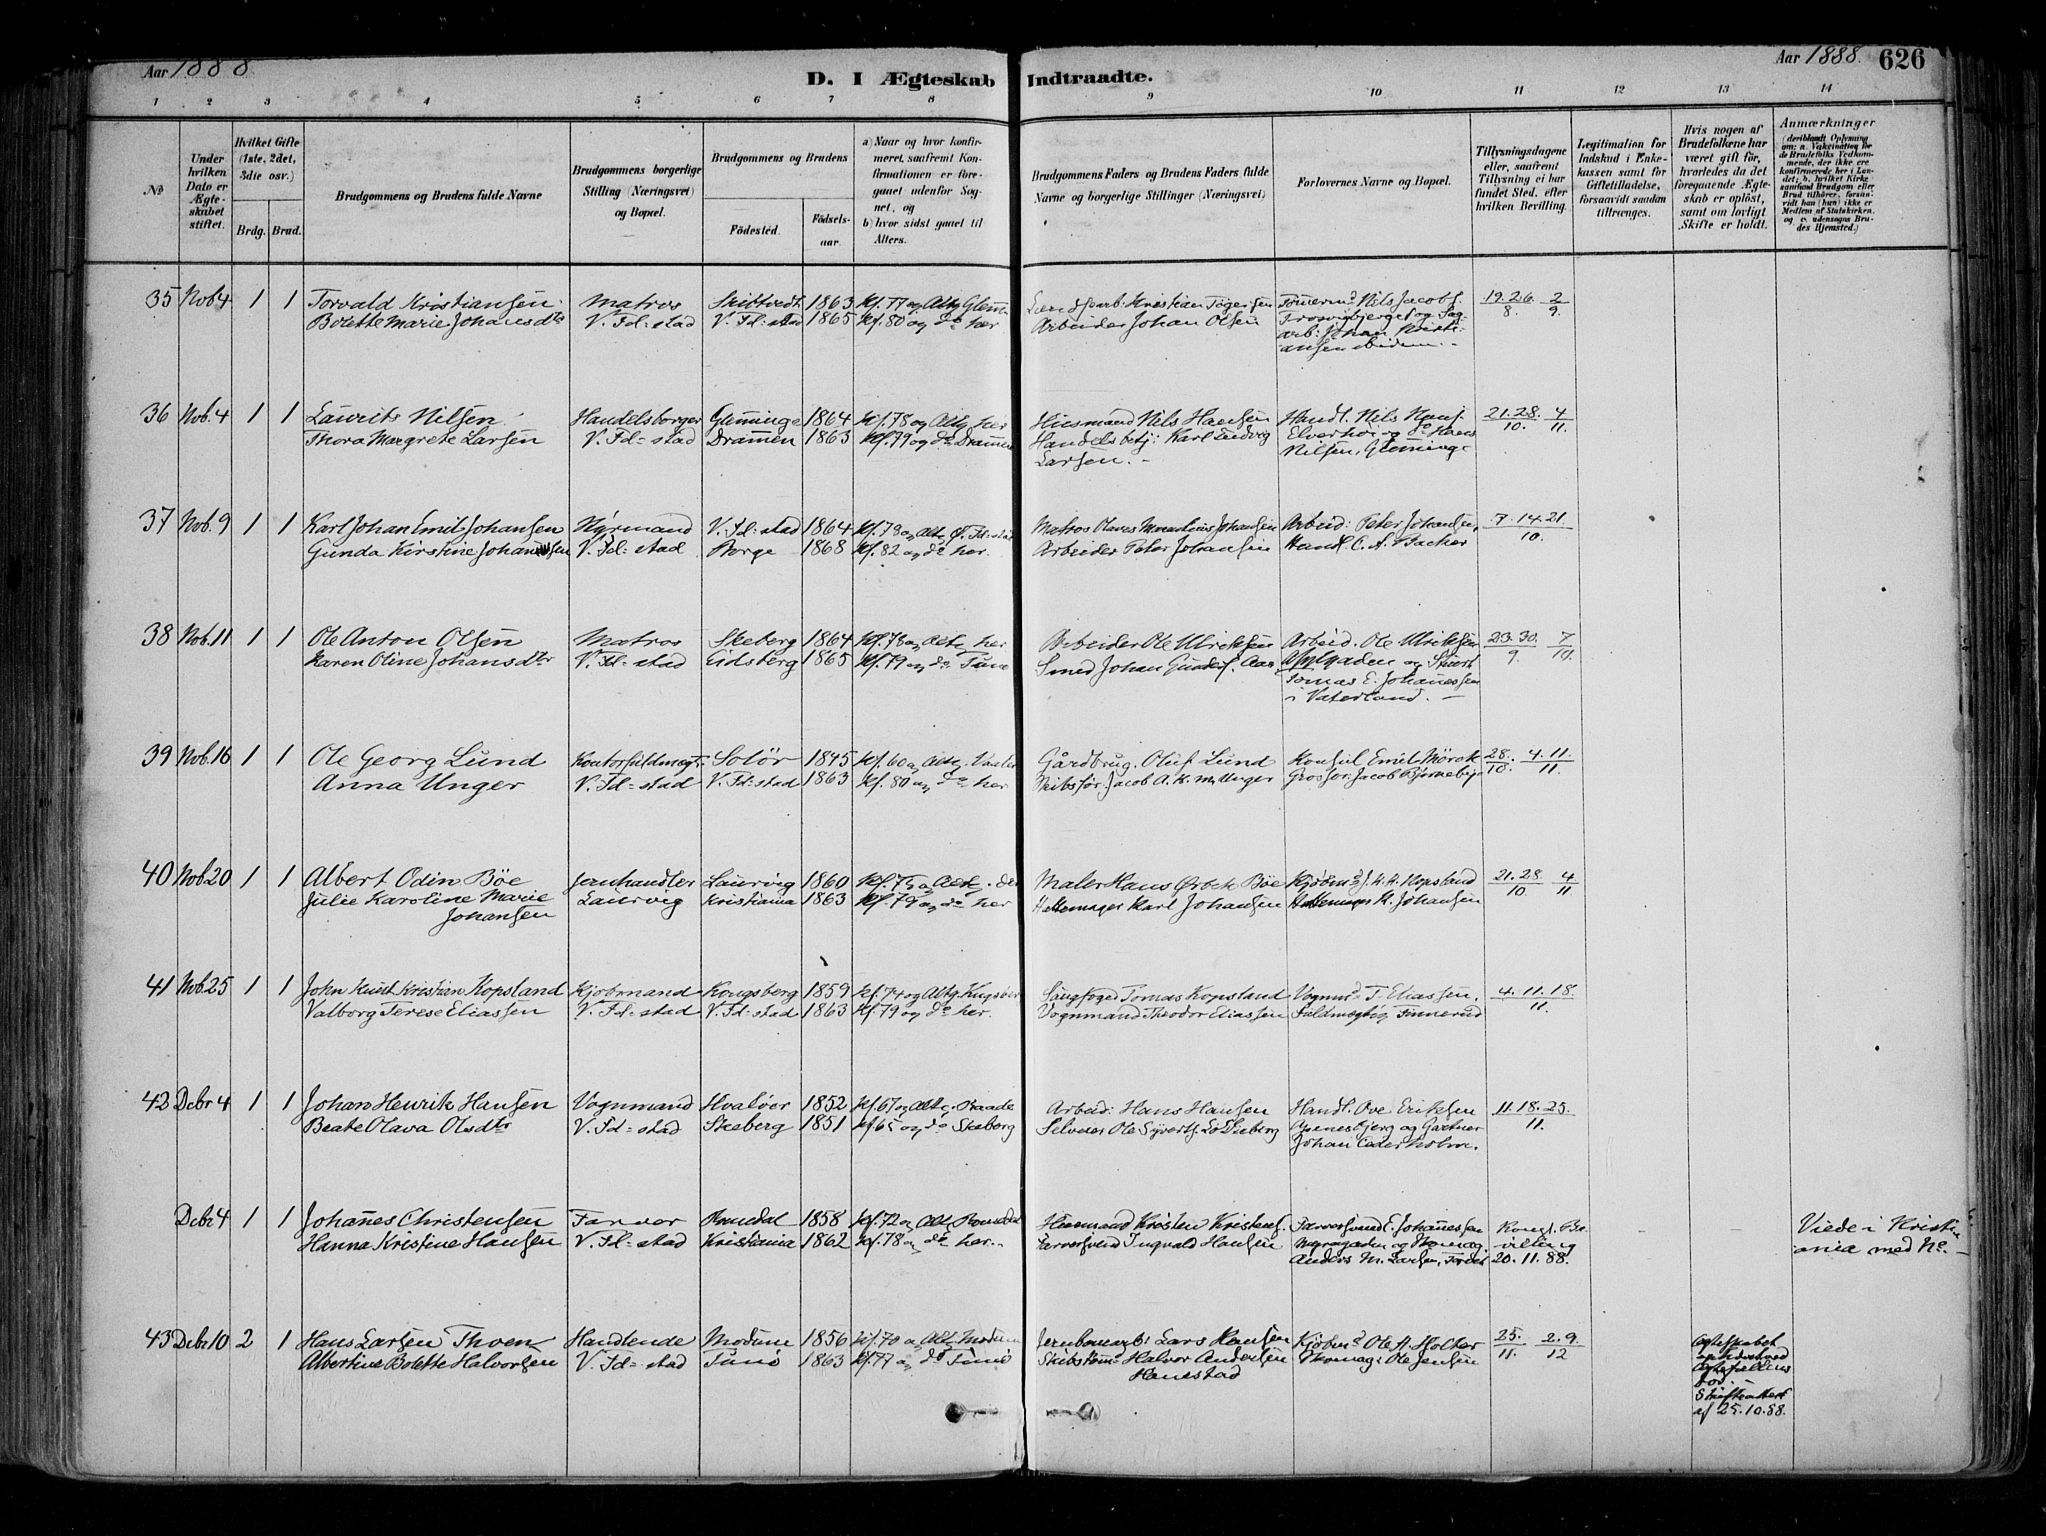 Aar 1888
D. I Ægteskab Indtraadte.
Aar 1888. 626
1 2 3 4 5 6 7 8 9 10 11 12 13 14
No
Under hvilken Dato er Ægteskabet stiftet.
Hvilket Gifte (1ste, 2det, 3die osv.)
Brdg. Brud.
Brudgommens og Brudens fulde Navne
Brudgommens borgerlige Stilling (Næringsvei) og Bopæl.
Brudgommens og Brudens
Födested.
Födselsaar.
a) Naar og hvor konfirmeret, saafremt Konfirmationen er foregaaet udenfor Sognet, og
b) hvor sidst gaaet til Alters.
Brudgommens Faders og Brudens Faders fulde Navne og borgerlige Stillinger (Næringsvei)
Forlovernes Navne og Bopæl.
Tillysningsdagene eller, saafremt Tillysning ei har fundet Sted, efter hvilken Bevilling.
Legitimation for Indskud i Enkekassen samt for Giftetilladelse, forsaavidt saadan tiltrænges.
Hvis nogen af Brudefolkene har været gift før, hvorledes da det foregaaende Ægteskab er opløst, samt om lovligt Skifte er holdt.
Anmærkninger
(deriblandt Oplysning om: a. Vakcination for de Brudefolks Vedkommende, der ikke ere konfirmerede her i Landet; b. hvilket Kirkesamfund Brudgom eller Brud tilhører, forsaavidt han (hun) ikke er Medlem af Statskirken, og c. udensogns Brudes Hjemsted.)
35 Nob4 1 1 Torvald Kristiansen Matros Skibtvedt 1863 Kf. 77 og Altg Glem: Landsarb: Kristian Tögersen Tömerm^d Nils Jacobs. 19. 26. 2
Bolette Marie Johansdtr V. Fd: stad V. Fd: stad 1865 Kf. 80 og d^o her Arbeider Johan Olsen Trosvigbjerget og Sag 8. 9.
arb: Johan Kristi
ansen ibidem. -
36 Nob. 4 1 1 Laurits Nilsen Handelsborger Gleminge 1864 Kf. 78 og Altg her Husmand Nils Hansen Handl. Nils Hans. 21. 28. 4
Thora Margrete Larsen V. Fd: stad Dramen 1863 Kf. 79 og d^o Dramen Handelsbetj: Karl Ludvig Elverhöi og d^o Hans 10. 11.
Larsen. - Nilsen, Gleminge
37 Nob. 9 1 1 Karl Johan Emil Johansen Hyrmand V. Fd: stad 1864 Kf. 78 og Altg Ø. Fd: stad Matros Olaves Johansen Arbeid: Peter Johansen, 7. 14. 21.
Gunda Kirstine Johansen V. Fd: stad Borge 1868 Kf. 82 og d^o her. Arbeider Peter Johansen Handl. C. A. Backer 10.
38 Nob. 11 1 1 Ole Anton Olsen Matros Skeberg 1864 Kf. 78 og Altg her Arbeider Ole Ulriksen Arbeid. Ole Ulriksen 23. 30. 7
Karen Oline Johansdtr V. Fd: stad Eidsberg 1865 Kf. 79 og d^o Tune Smed Johan Gunders. Aas og Stuert 9. 10.
Tomas E. Johanessen
i Vaterland. -
39 Nob. 16 1 1 Ole Georg Lund Kontorfuldmægt: Solör 1845 Kf. 60 og Altg. Gårdbrug. Oluf Lund Konsul Emil Mörck 28. 4. 11.
Anna Unger V. Fd: stad V. Fd: stad 1863 Kf. 80 og d^o her Skibsför. Jacob A. K. Unger Grosser. Jacob Bjerneby 10. 11.
40 Nob 20 1 1 Albert Odin Böe Jernhandler Laurvig 1860 Kf. 75 og Altg. der Maler Hans Ørbek Böe Kjöbm^d J. K. K. Kopsland 21. 28. 4
Julie Karoline Marie Laurvig Kristiania 1863 Kf. 79 og d^o her Hattemager Karl Johansen Hattemager K. Johansen 10 11
Johansen
41 Nob. 25 1 1 John Knut Kristian Kopsland Kjöbmand Kongsberg 1859 Kf. 74 og Altg. Sangfoged Tomas Kopsland Vognm^d T. Eliassen. 4. 11. 18.
Valborg Terese Eliassen V. Fd: stad V. Fd: stad 1863 Kf. 79 og d^o her. Vognmand Theodor Eliassen Fuldmægtig Finnerud 11.
42 Debr 4 1 1 Johan Henrik Hansen Vognmand Hvalöer 1852 Kf. 67 og Altg. Raade Arbeid: Hans Hansen Handl. Ove Eriksen 11. 18. 25.
Beate Olava Olsdtr V. Fd: stad Skeberg 1851 Kf 65 og d^o Skeberg Selveier Ole Syverts. Skeberg Apenesbjerg og Gartner 11.
Johan Cederholm.
Debr 4 1 1 Johanes Christensen Farver Romedal 1858 Kf. 72 og Altg Romedal Husmand Kristen Kristens. Farversvend E. Johanessen Kongl. Be Viede i Kristi
Hanna Kristine Hansen V. Fd: stad Kristiania 1862 Kf. 78 og d^o her. Farversvend Ingvald Hansen og Skomag. villing ania med No. -
Anders M. Larsen, 20. 11. 88.
43 Debr 10 2 1 Hans Larsen Thoen Handlende Modum 1856 Kf. 70 og Altg Modum Jernbanearb: Lars Hansen Kjöbm^d Ole A. Holter 25. 2. 9. Ægteskabet
Albertine Bolette Halvorsen V. Fd: stad Tune 1863 Kf. 77 og d^o Tune Skibstöm: Halvor Andersen Skomag: Ole Jensen 11. 12 oplöst ved
Hanestad Ægtefællens
Död. -
Skifteattest
af 25. 10. 88.